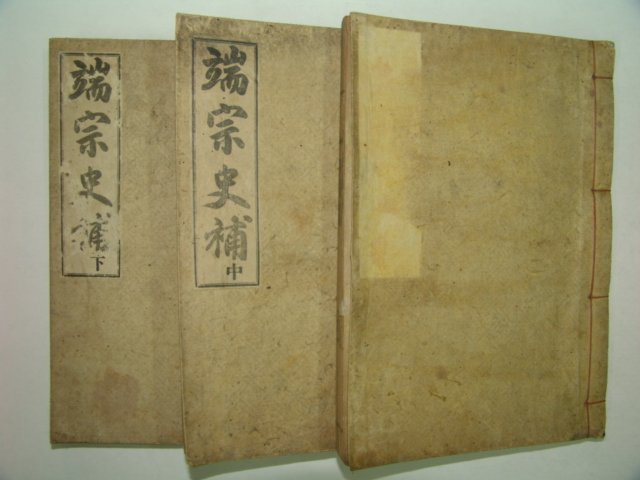 端宗史補
中
端宗史補
下